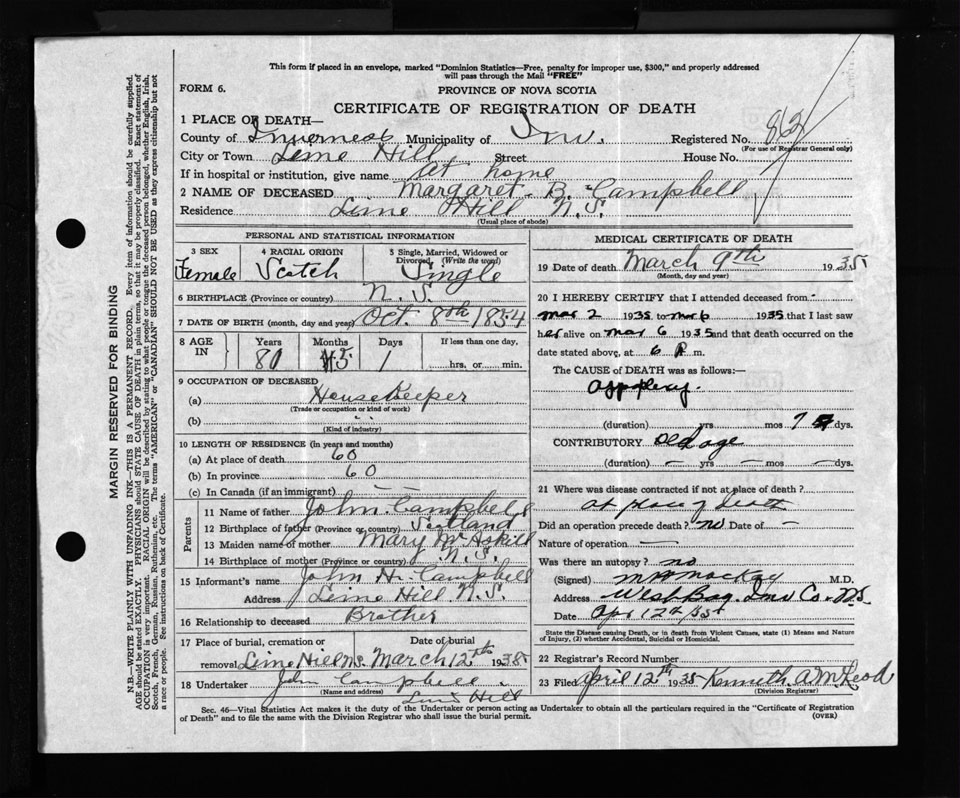 This form if placed in an envelope, marked "Dominion Statistics—Free, penalty for improper use, $300," and properly addressed
will pass through the Mail "FREE"
FORM 6.
PROVINCE OF NOVA SCOTIA
CERTIFICATE OF REGISTRATION OF DEATH
1 PLACE OF DEATH—
County of Inverness Municipality of Inv. Registered No.
(For use of Registrar General only)
City or Town Lime Hill Street House No.
If in hospital or institution, give name At home
2 NAME OF DECEASED Margaret B. Campbell
Residence Lime Hill N.S.
(Usual place of abode)
PERSONAL AND STATISTICAL INFORMATION
3 SEX 4 RACIAL ORIGIN 5 Single, Married, Widowed or
Divorced (Write the word)
Female Scotch Single
6 BIRTHPLACE (Province or country) N.S.
7 DATE OF BIRTH (month, day and year) Oct. 8th 1854
8 AGE IN Years Months Days If less than one day,
80 5 1 hrs. or min.
9 OCCUPATION OF DECEASED
(a) Housekeeper
(Trade or occupation or kind of work)
(b)
(Kind of industry)
10 LENGTH OF RESIDENCE (in years and months)
(a) At place of death 60
(b) In province 60
(c) In Canada (if an immigrant) — —
Parents
11 Name of father John Campbell
12 Birthplace of father (Province or country) Scotland
13 Maiden name of mother Mary McAskill
14 Birthplace of mother (Province or country) N.S.
15 Informant's name John H. Campbell
Address Lime Hill N.S.
16 Relationship to deceased Brother
17 Place of burial, cremation or Date of burial
removal Lime Hill N.S. March 12th 1935
18 Undertaker John Campbell
(Name and address)
Lime Hill
MEDICAL CERTIFICATE OF DEATH
19 Date of death March 9th 1935
(Month, day and year)
20 I HEREBY CERTIFY that I attended deceased from
Mar 2 1935 to Mar 6 1935 that I last saw
her alive on Mar 6 1935 and that death occurred on the
date stated above, at 6 P. m.
The CAUSE of DEATH was as follows:—
(duration) yrs mos 7 dys.
CONTRIBUTORY Old age
(duration) — yrs — mos — dys.
21 Where was disease contracted if not at place of death?
at place of death
Did an operation precede death? no Date of —
Nature of operation —
Was there an autopsy? no
(Signed) MacKay M.D.
Address West Bay. Inv Co. N.S.
Date Apr 12th
State the Disease causing Death, or in death from Violent Causes, state (1) Means and Nature
of Injury, (2) whether Accidental, Suicidal or Homicidal.
22 Registrar's Record Number
23 Filed April 12th 1935 Kenneth A McLeod
(Division Registrar)
Sec. 46—Vital Statistics Act makes it the duty of the Undertaker or person acting as Undertaker to obtain all the particulars required in the "Certificate of Registration
of Death" and to file the same with the Division Registrar who shall issue the burial permit. (OVER)
MARGIN RESERVED FOR BINDING
N.B.—WRITE PLAINLY WITH UNFADING INK—THIS IS A PERMANENT RECORD. Every item of information should be carefully supplied.
AGE should be stated EXACTLY. PHYSICIANS should state CAUSE OF DEATH in plain terms, so that it may be properly classified. Exact statement of
OCCUPATION is very important. RACIAL ORIGIN will be described by stating to what people or tongue the deceased person belonged, whether English, Irish,
Scotch, French, German, Russian, Ruthenian, etc. The terms "AMERICAN" or "CANADIAN" SHOULD NOT BE USED as they express citizenship but not
a race or people. See instructions on back of Certificate.